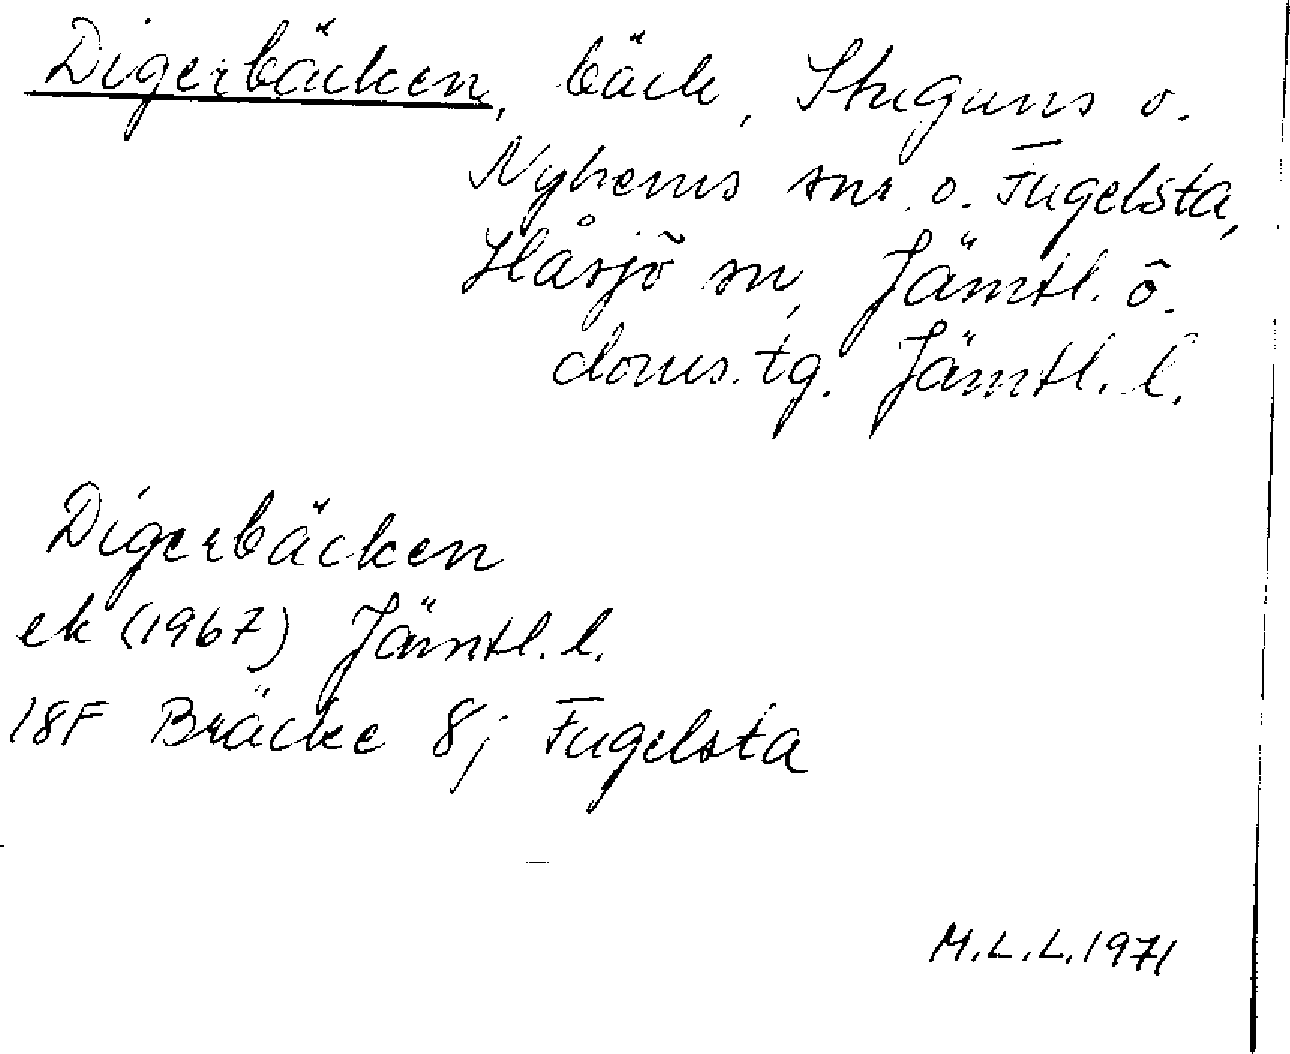 Digerbäcken, bäck, Stuguns o.
Nyhems snr. o. Fugelsta,
Håsjö sn, Jämtl. ö.
doms. tg. Jämtl. l.
Digerbäcken
ek (1967) Jämtl. l.
18F Bräcke 8j Fugelsta
M.L.L. 1971